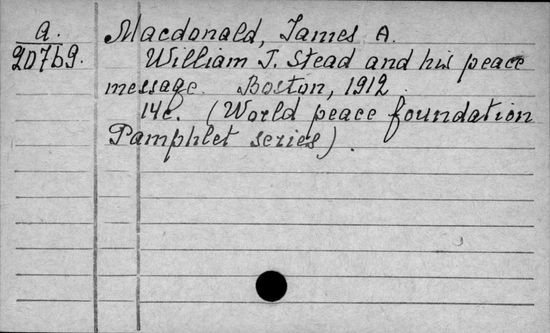 A.
20769.
Macdonald, James A.
William T. Stead and his peace
message. Boston, 1912
14c. (World peace foundation
Pamphlet series).